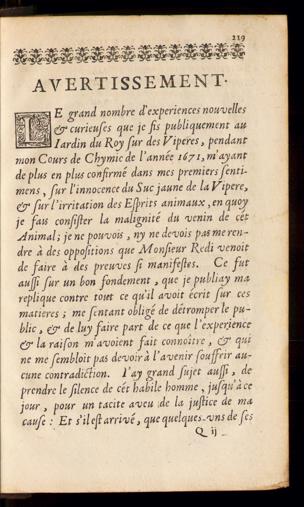 219
AVERTISSEMENT.
LE grand nombre d'experiences nouvelles
& curieuses que je fis publiquement au
Iardin du Roy sur des Viperes, pendant
mon Cours de Chymie de l'année 1671, m'ayant
de plus en plus confirmé dans mes premiers senti-
mens, sur l'innocence du Suc jaune de la Vipere,
& sur l'irritation des Esprits animaux, en quoy
je fais consister la malignité du venin de cét
Animal; je ne pouvois, ny ne devois pas me ren-
dre à des oppositions que Monsieur Redi venoit
de faire à des preuves si manifestes. Ce fut
aussi sur un bon fondement, que je publiay ma
replique contre tout ce qu'il avoit écrit sur ces
matieres; me sentant obligé de détromper le pu-
blic, & de luy faire part de ce que l'experience
& la raison m'avoient fait connoître, & qui
ne me sembloit pas devoir à l'avenir souffrir au-
cune contradiction. I'ay grand sujet aussi, de
prendre le silence de cét habile homme, jusqu'à ce
jour, pour un tacite aveu de la justice de ma
cause: Et s'il est arrivé, que quelques-vns de ses
Q ij